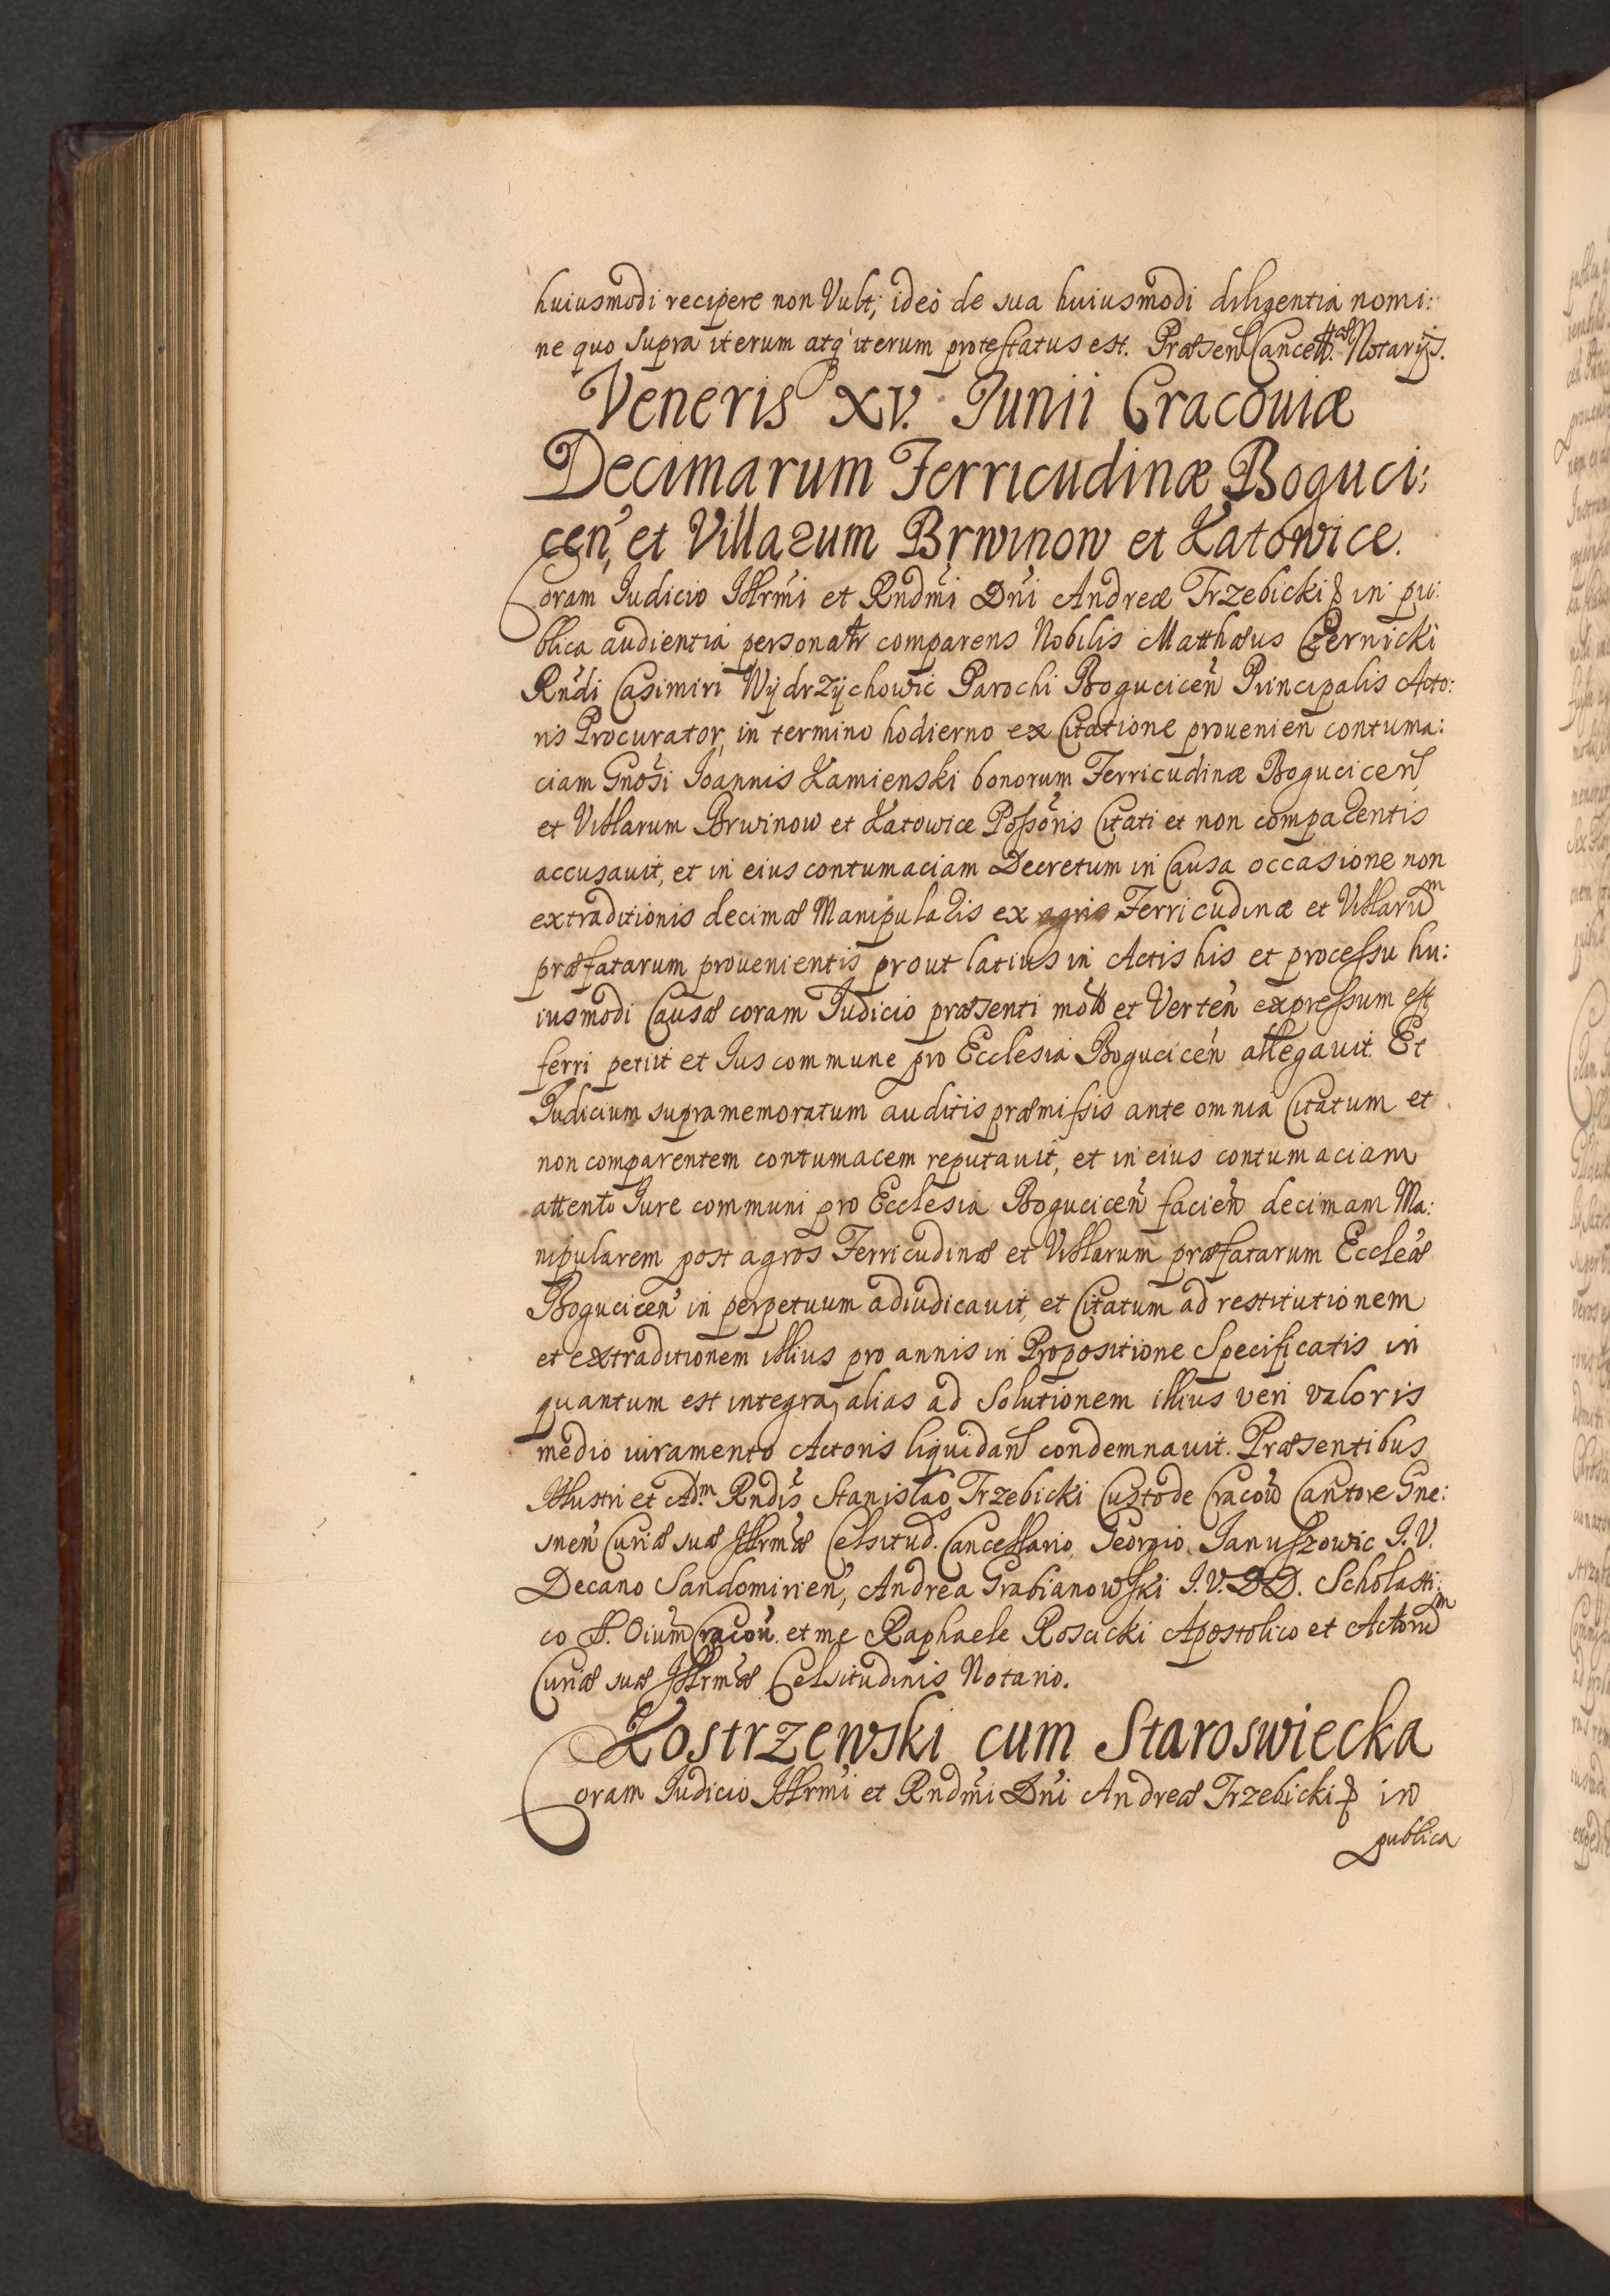 huiusmodi recipere non Vult; ideò de sua huiusmodi diligentia nomi:
ne quo supra iterum atq iterum protestatus est. Præsen Cancell. Notarijs.
Veneris XV. Junii Cracouiæ
Decimarum Ferricudinæ Boguci:
cen, et Villarum Brwinow et Katowice.
Coram Judicio Illrmi et Rndmi Dni Andreæ Trzebicki in pu:
blica audientia personalr comparens Nobilis Matthæus Czernicki
Rndi Casimiri Wÿdrzÿchowic Parochi Bogucicen Principalis Acto:
ris Procurator, in termino hodierno ex Citatione prouenien contuma:
ciam Gnosi Joannis Kamienski bonorum Ferricudinæ Bogucicen
et Villarum Brwinow et Katowice Possoris Citati et non comparentis
accusauit, et in eius contumaciam Decretum in Causa occasione non
extraditionis decimæ Manipularis ex agris Ferricudinæ et Villarum
præfatarum prouenientis prout latius in Actis his et processu hu:
iusmodi Causæ coram Judicio præsenti mot et Verten expressum est,
ferri petiit et Jus commune pro Ecclesia Bogucicen allegauit. Et
Judicium supramemoratum auditis præmissis ante omnia Citatum et
non comparentem contumacem reputauit, et in eius contumaciam
attento Jure communi pro Ecclesia Bogucicen facien decimam Ma:
nipularem post agros Ferricudinæ et Villarum præfatarum Eccleæ
Bogucicen in perpetuum adiudicauit, et Citatum ad restitutionem
et extraditionem illius pro annis in Propositione Specificatis in
quantum est integra, alias ad Solutionem illius veri valoris
medio iuramento Actoris liquidan condemnauit. Præsentibus
Illustri et Adm Rndis Stanislao Trzebicki Custode Cracou Cantore Gne:
snen Curiæ suæ Illrmæ Celsitud. Cancellario, Georgio Januszowic J. V.
Decano Sandomirien, Andrea Grabianowski J. V. DD. Scholasti:
co S. Oium Cracou. et me Raphaele Roscicki Apostolico et Actorum
Curiæ suæ Illrmæ Celsitudinis Notario.
Kostrzewski cum Staroswiecka
Coram Judicio Illrmi et Rndmi Dni Andreæ Trzebicki in
publica